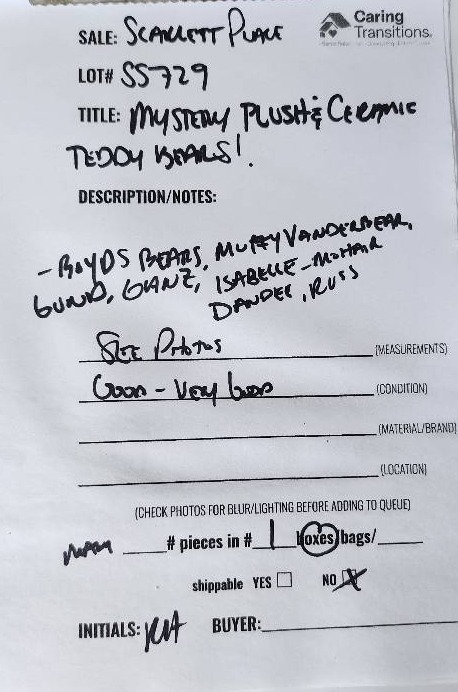 SALE: SCARLETT PLACE
Caring Transitions.
LOT# SS729
TITLE: MYSTERY PLUSH & CERAMIC
TEDDY BEARS!
DESCRIPTION/NOTES:
- BOYDS BEARS, MUFFY VANDERBEAR,
GUND, GANZ, ISABELLE - MOHAIR
DANDEE, RUSS
SEE PHOTOS (MEASUREMENTS)
GOOD - VERY GOOD (CONDITION)
(MATERIAL/BRAND)
(LOCATION)
(CHECK PHOTOS FOR BLUR/LIGHTING BEFORE ADDING TO QUEUE)
MANY # pieces in # 1 boxes/bags/
shippable YES NO X
INITIALS: BUYER: